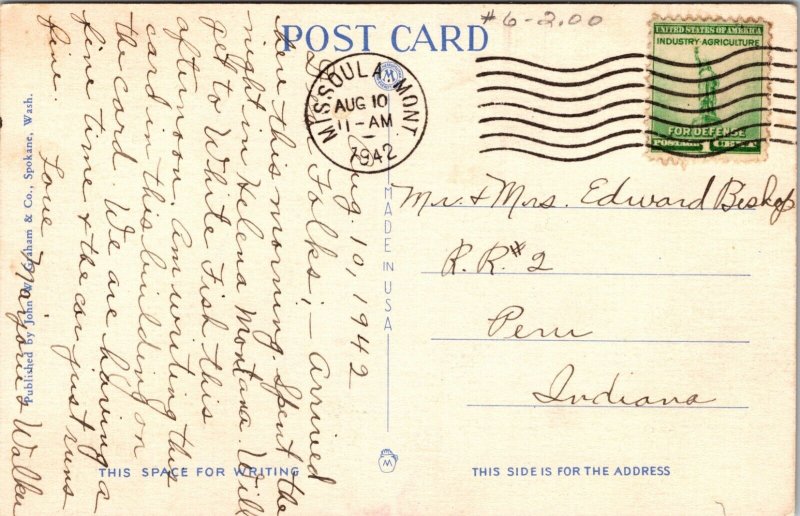 #6-2.00
POST CARD
UNITED STATES OF AMERICA
INDUSTRY-AGRICULTURE
FOR DEFENSE
POSTAGE 1 CENT
MISSOULA MONT
AUG 10
11-AM
1942
Aug. 10, 1942
Dear Folks; - Arrived
here this morning. Spent the
night in Helena Montana. Will
get to White Fish this
afternoon. Am writing this
card in this building on
the card. We are having a
fine time & the car just runs
fine. Love Marjorie & Walker
Mr. & Mrs. Edward Bishop
R.R. #2
Peru
Indiana
MADE IN USA
Published by John W. Graham & Co., Spokane, Wash.
THIS SPACE FOR WRITING
M
THIS SIDE IS FOR THE ADDRESS